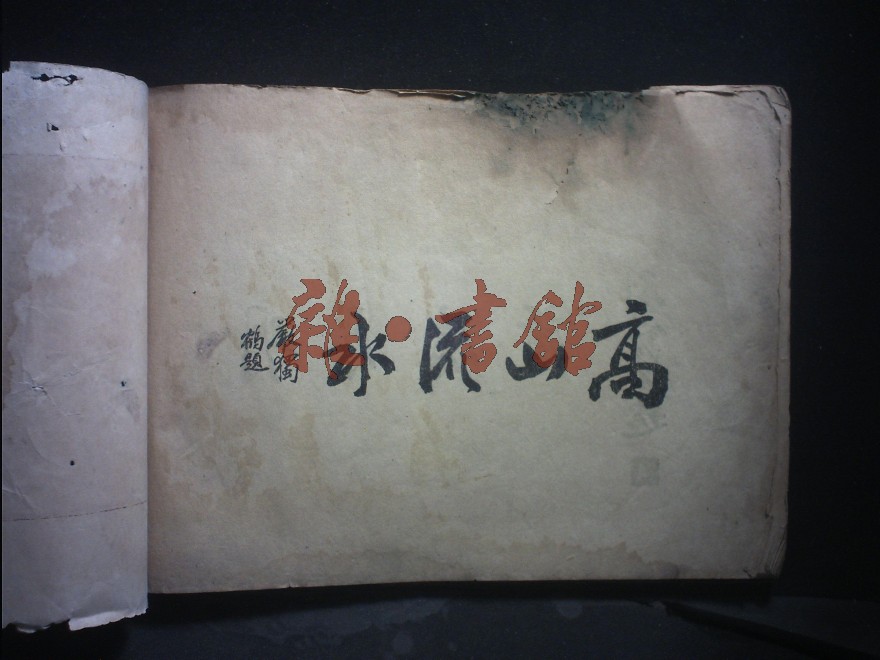 高山流水
嚴獨
鶴題
雜·書館